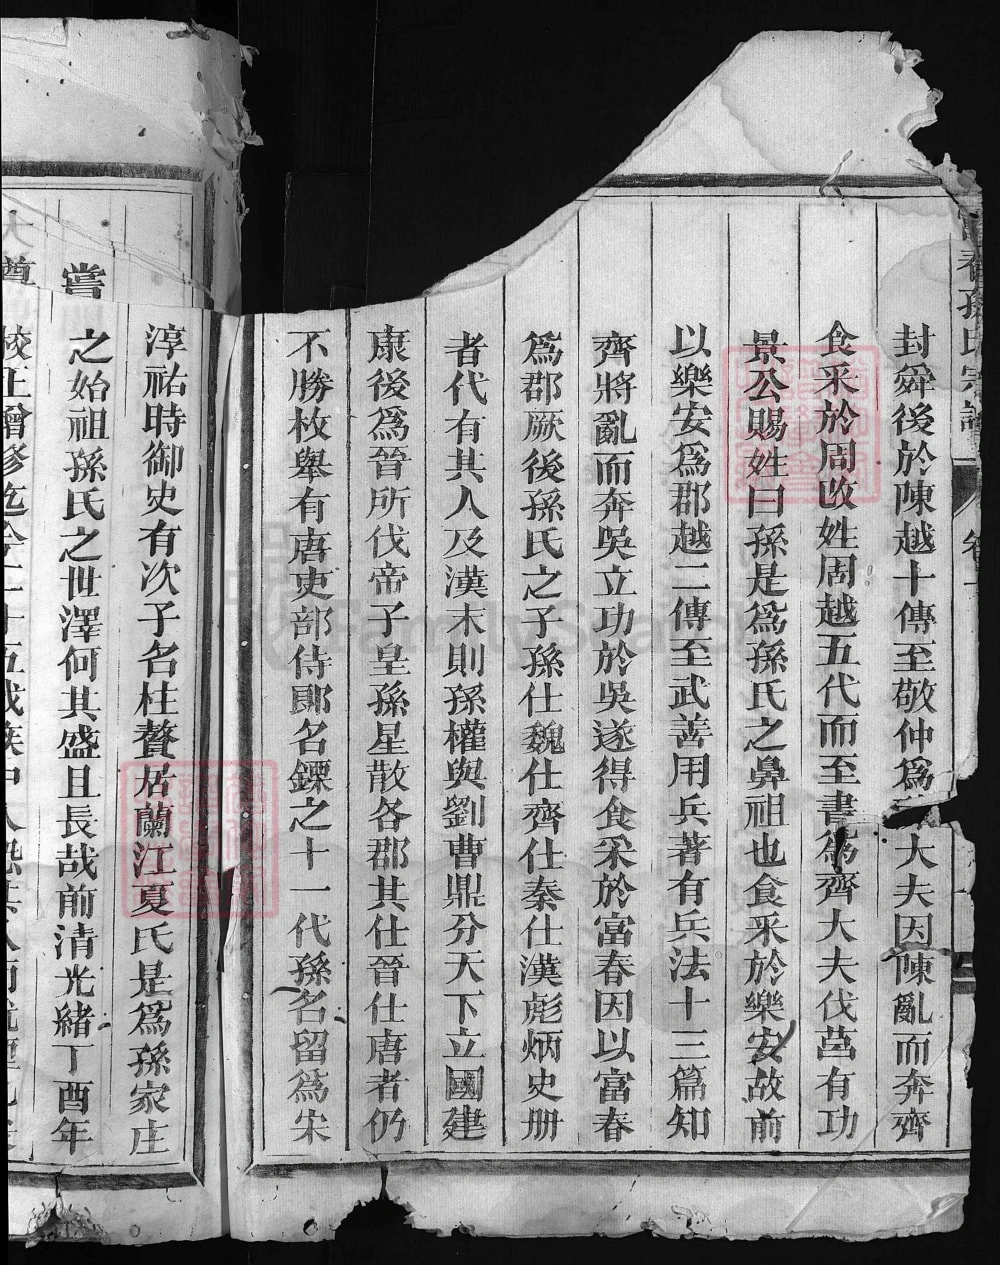 春孫氏宗譜
封舜後於陳越十傳至敬仲爲大夫因陳亂而奔齊
食采於周改姓周越五代而至書爲齊大夫伐莒有功
景公賜姓曰孫是爲孫氏之鼻祖也食采於樂安故前
以樂安爲郡越二傳至武善用兵著有兵法十三篇知
齊將亂而奔吳立功於吳遂得食采於富春因以富春
爲郡厥後孫氏之子孫仕魏仕齊仕秦仕漢彪炳史册
者代有其人及漢末則孫權與劉曹鼎分天下立國建
康後爲晉所伐帝子皇孫星散各郡其仕晉仕唐者仍
不勝枚舉有唐吏部侍郞名鏁之十一代孫名留爲宋
淳祐時御史有次子名柱贅居蘭江夏氏是爲孫家庄
之始祖孫氏之世澤何其盛且長哉前清光緒丁酉年
嘗
校正增修迄今二十五
FamilySearch